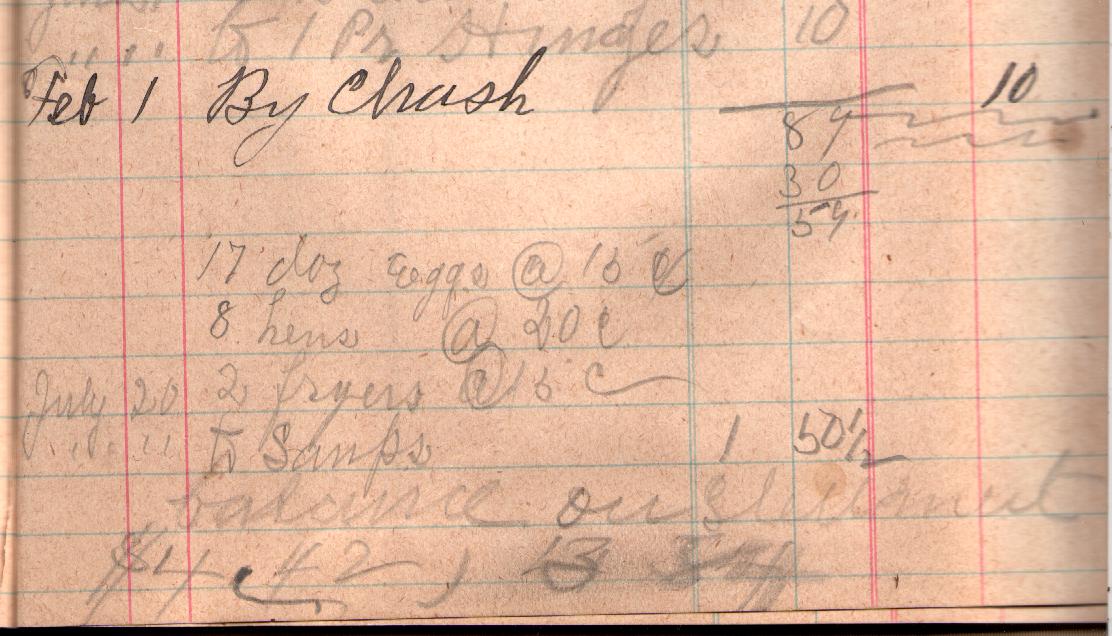 " " to 1 Pr Hinges 10
Feb 1 By Chash 10
84
30
54
17 doz Eggs @ 15 ¢
8 hens @ 20 ¢
2 fryers @ 15 ¢
July 20
" " to Sanps 1 50½
balance on